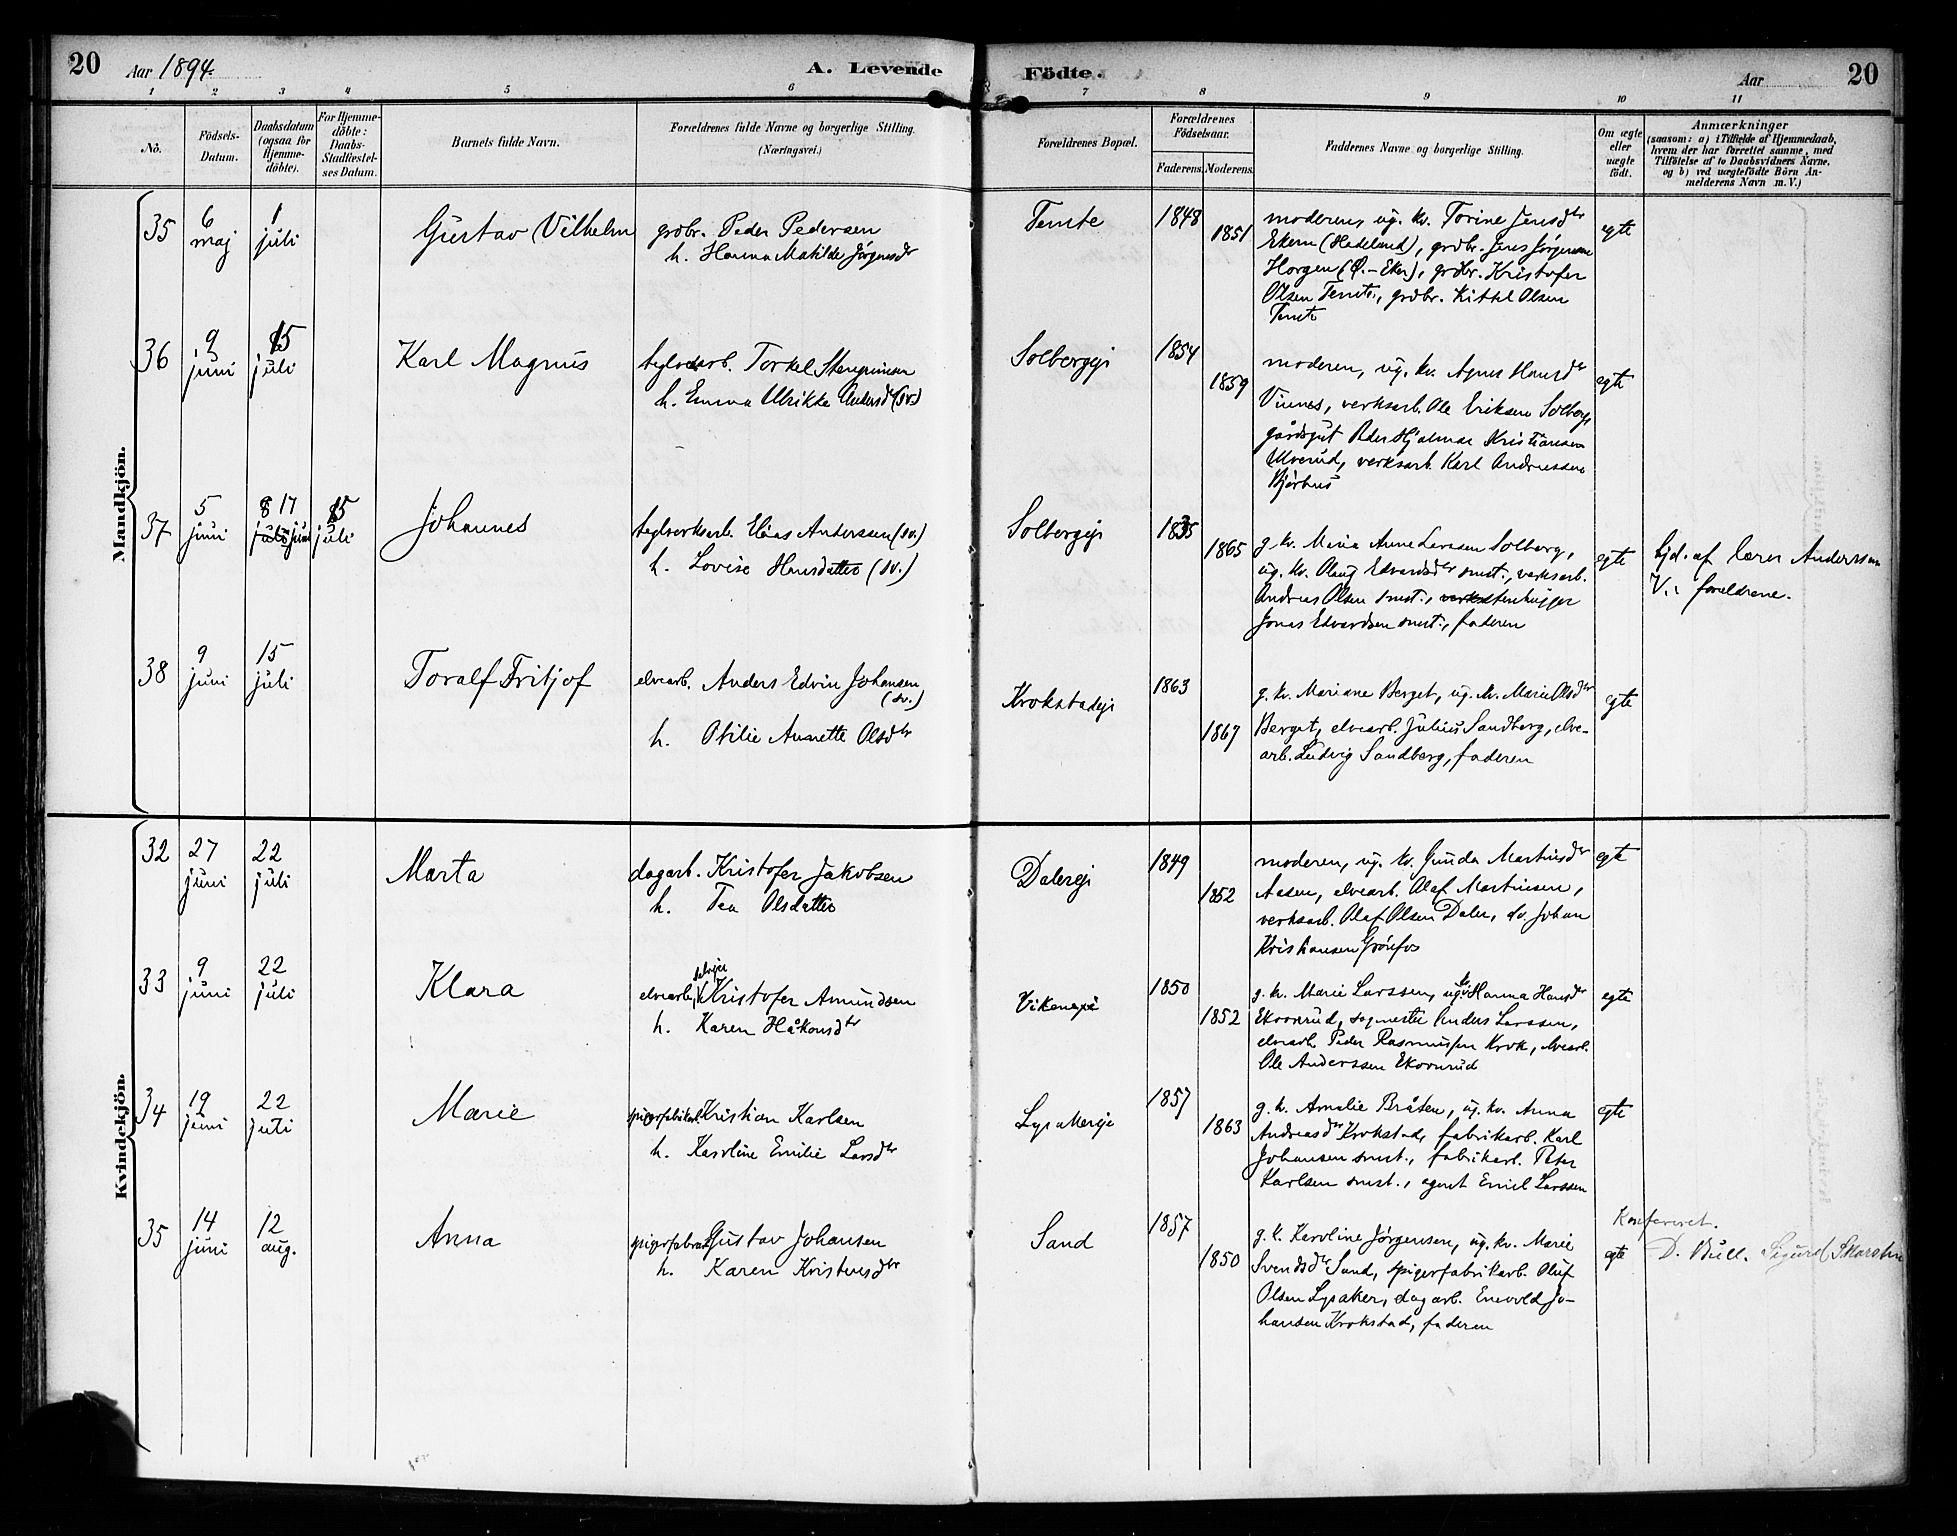 20 Aar 1894. A. Levende Födte. Aar 20
1 2 3 4 5 6 7 8 9 10 11
No. Födsels-Datum. Daabsdatum (ogsaa for Hjemme-döbte). For Hjemme-döbte: Daabs-Stadfæstel-ses Datum. Barnets fulde Navn. Forældrenes fulde Navne og borgerlige Stilling. (Næringsvei.) Forældrenes Bopæl. Forældrenes Födselsaar. Faderens. Moderens. Faddernes Navne og borgerlige Stilling. Om ægte eller uægte födt. Anmærkninger (saasom: a) i Tilfælde af Hjemmedaab, hvem der har forrettet samme, med Tilföielse af to Daabsvidners Navne, og b) ved uægtefödte Börn An-melderens Navn m. V.)
Mandkjön.
35 6 maj 1 juli Gustav Vilhelm grdbr. Peder Pedersen
h. Hanna Matilde Jørgensdr
Temte 1848 1851
moderen, ug. kv. Torine Jensdtr
Ekern (Hadeland), grdbr. Jens Jørgensen
Horgen (Ø.-Eker), grdbr. Kristofer
Olsen Temte, grdbr. Kittel Olsen
Temte
egte
36 9 juni 15 juli Karl Magnus teglverkarb. Torkel
h. Emma Ulrikke Andersd (sv.)
Solbergeje 1854 1859
moderen, ug. kv. Agnes Hansdtr
Vinnes, verksarb. Ole Eriksen Solberg,
gårdsgut Peder Hjalmar Kristiansen
Ulverud, verksarb. Karl Andreassen
egte
37 5 juni 8 juli 17 juni 15 juli Johannes teglverksarb. Elias Anderssen (sv.)
h. Lovise Hansdatter (sv.)
Solbergeje 1835 1865
g. kv. Maria Anne Larssen Solberg,
ug. kv. Olaug Edvardsdtr smst., verksarb.
Andreas Olsen smst., stenhugger
Jonas Edvardsen smst., faderen
egte
hjd. af lærer Anderssen
V.: forældrene.
38 9 juni 15 juli Toralf Fritjof elvearb. Anders Edvin Johansen
(sv.)
h. Otilie Annette Olsdtr
Krokstadeje 1863 1867
g. kv. Mariane Berget, ug. kv. Marie Olsdtr
Berget, elvearb. Julius Sandberg, elve-
arb. Ludvig Sandberg, faderen
egte
Kvindekjön.
32 27 juni 22 juli Marta dagarb. Kristofer Jakobsen
h. Tea Olsdatter
Dalereje 1849 1852
moderen, ug. kv. Gunda Martinsdtr
Aasen, elvearb. Olaf Martinsen,
verksarb. Olaf Olsen Daler, do. Johan
Kristiansen Grønfos
egte
33 9 juni 22 juli Klara elvearb. Kristofer Amundsen
h. Karen Håkonsdtr
Vikeneje 1850 1852
g. k. Marie Larssen, ug. kv. Hanna Hansdr
Ekornrud, sagmester Anders Larssen,
elvearb. Peder Rasmussen Krok, elvearb.
Ole Anderssen Ekornrud
egte
34 19 juni 22 juli Marie spigerfabrikarb. Kristian Karlsen
h. Karoline Emilie Larsdtr
Lysakereje 1857 1863
g. k. Amalie Bråten, ug. kv. Anna
Andreasdtr Krokstad, fabrikarb. Karl
Johansen smst., fabrikarb. Peter
Karlsen smst., agent Emil Larssen
egte
35 14 juni 12 aug. Anna spigerfabrikarb. Gustav Johansen
h. Karen Kristensdtr
Sand 1857 1850
g. k. Karoline Jørgensen, ug. kv. Marie
Svendsdtr Sand, spigerfabrikarb. Oluf
Olsen Lysaker, dagarb. Enevold Jo-
hansen Krokstad, faderen
egte
Konfereret.
D. Bull. Sigurd Skarstein